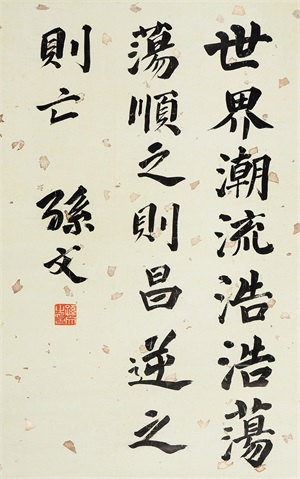 世界潮流浩浩蕩
蕩順之則昌逆之
則亡 孫文